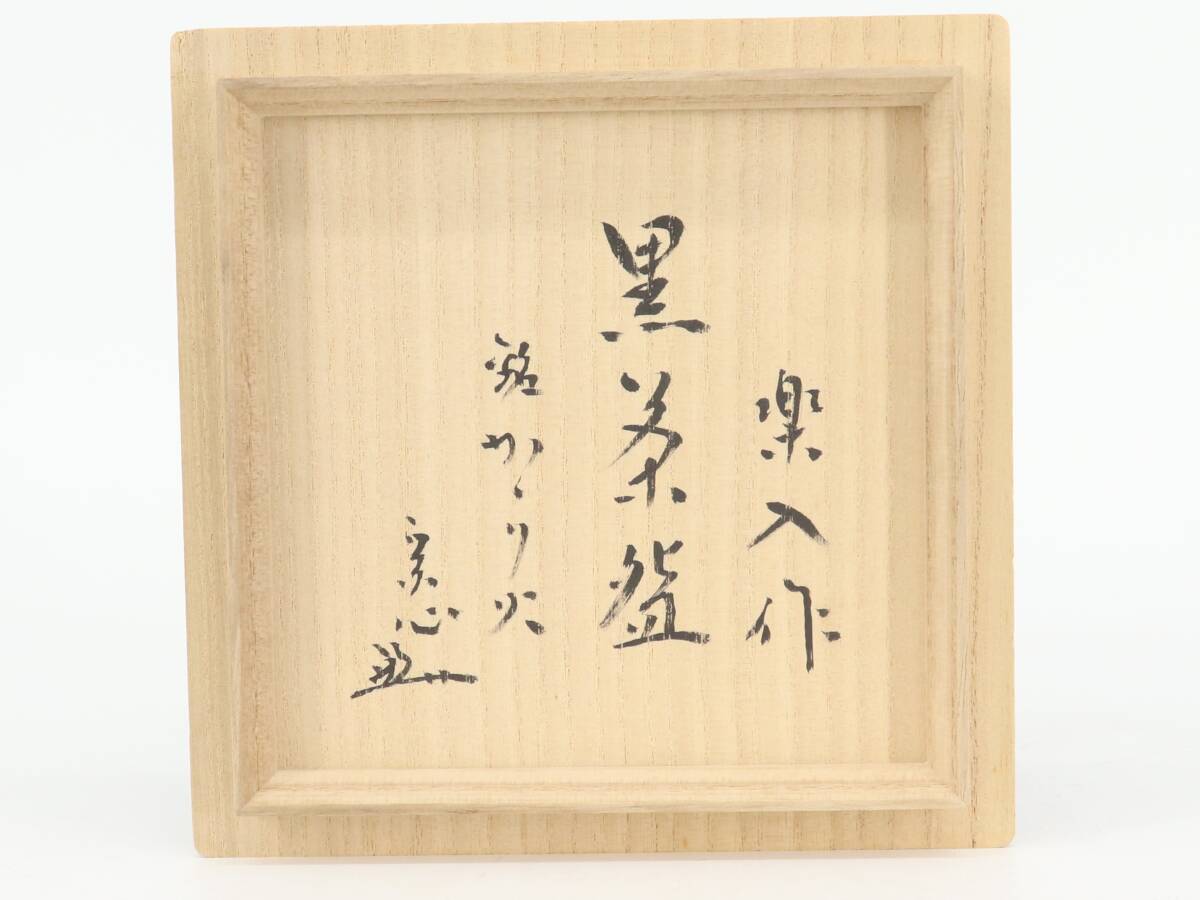 楽入作
黒茶盌
銘かゝり火
宗心